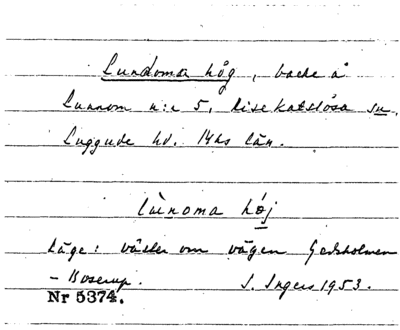 Lundoma hög, backe å
Lunnom n:r 5, Risekatslösa sn,
Luggude hd. Mhs län.
lùnoma høj
Läge: väster om vägen Gedsholmen
- Boserup. S. Ingers 1953.
Nr 5374.